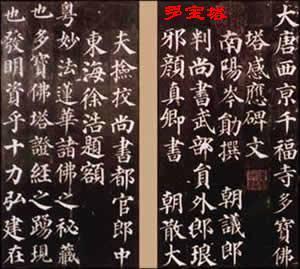 多宝塔
大唐西京千福寺多寶佛
塔感應碑文
南陽岑勛撰 朝議郎
判尚書武部員外郎琅
邪顏真卿書 朝散大
夫撿校尚書都官郎中
東海徐浩題額
粵妙法蓮華諸佛之秘藏
也多寶佛塔證經之踴現
也發明資乎十力弘建在